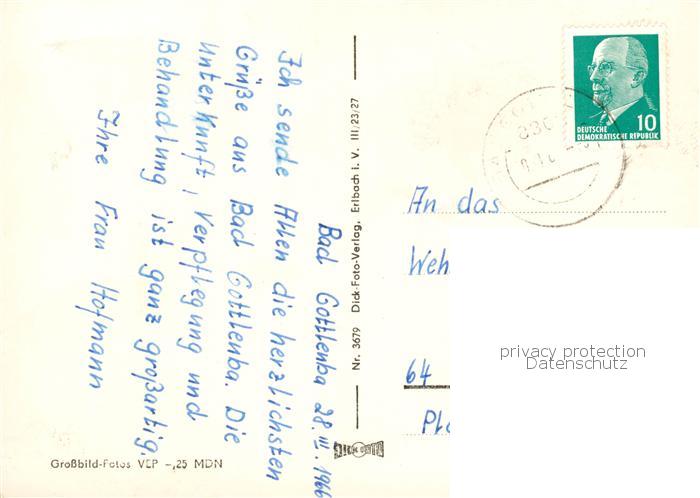 Bad Gottleuba 28.III.1966
Ich sende Allen die herzlichsten
Grüße aus Bad Gottleuba. Die
Unterkunft, Verpflegung und
Behandlung ist ganz großartig.
Ihre Frau Hofmann
Nr. 3679 Dick-Foto-Verlag, Erlbach i. V. III/23/27
Großbild-Fotos VEP -,25 MDN
10
DEUTSCHE
DEMOKRATISCHE REPUBLIK
An das
Weh
64
privacy protection
Datenschutz